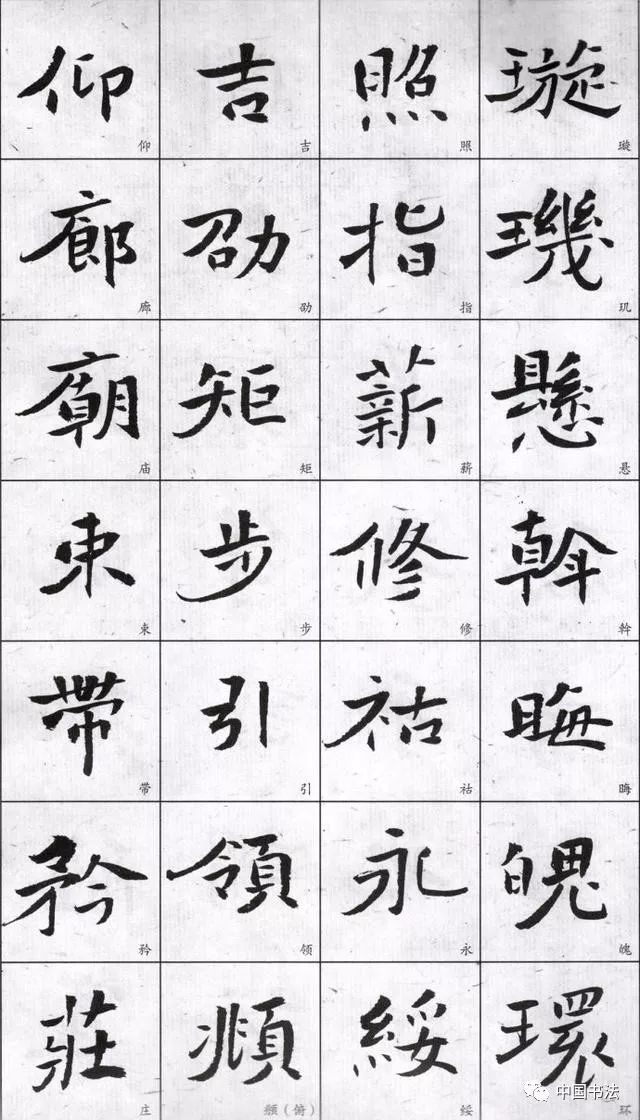 璇 璇
璣 玑
懸 悬
斡 斡
晦 晦
魄 魄
環 环
照 照
指 指
薪 薪
修 修
祜 祜
永 永
綏 绥
吉 吉
劭 劭
矩 矩
步 步
引 引
領 领
頫 頫（俯）
仰 仰
廊 廊
廟 庙
束 束
帶 带
矜 矜
莊 庄
中国书法